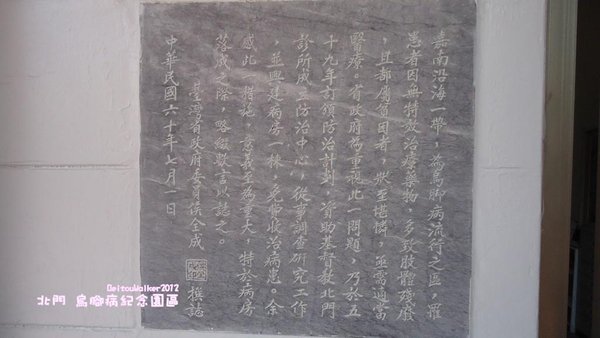 嘉南沿海一帶，為烏脚病流行之區，罹
患者因無特效治療藥物，多致肢體殘廢
，且都屬貧困者，狀至堪憐，亟需適當
醫療。省政府為重視此一問題，乃於五
十九年訂頒防治計劃，資助基督教北門
診所成立防治中心，從事調查研究工作
，並興建病房一棟，免費收治病患。余
感此一措施，意義至為重大，特於病房
落成之際，略綴數言以誌之。
臺灣省政府委員侯全成
撰誌
中華民國六十年七月一日
BeitouWalker2012
北門 烏腳病紀念園區